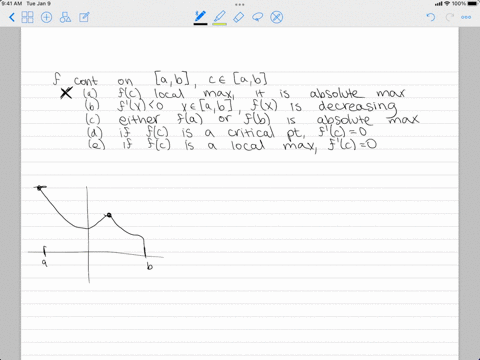 9:41 AM Tue Jan 9
100%
f cont on [a,b], c∈[a,b]
X (a) f(c) local max, it is absolute max
(b) f'(x)<0 x∈[a,b], f(x) is decreasing
(c) either f(a) or f(b) is absolute max
(d) if f(c) is a critical pt, f'(c)=0
(e) if f(c) is a local max, f'(c)=0
a b